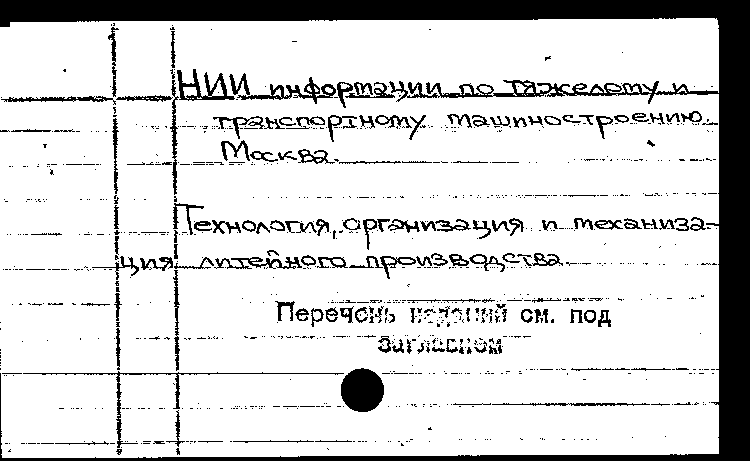 НИИ информации по тяжелому и
транспортному машиностроению.
Москва.
Технология, организация и механиза-
ция литейного производства.
Перечень изданий см. под
заглавием